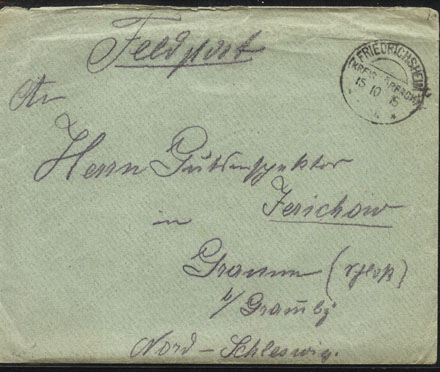 Feldpost
FRIEDRICHSHEIM
15 10 15
An
Herrn Gutsinspektor
Jerichow
in
Gramm (Schloß)
b/Gramby
Nord-Schleswig.